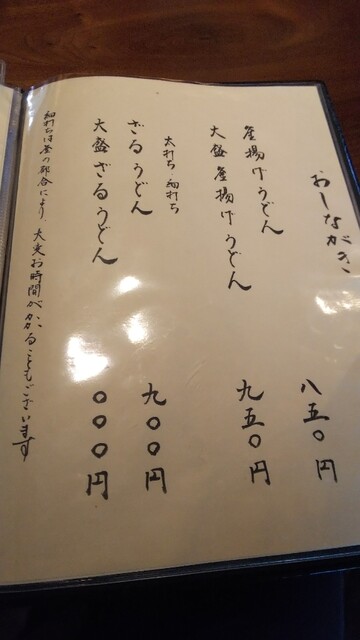 おしながき
釜揚げうどん 八五〇円
大盛釜揚げうどん 九五〇円
太打ち・細打ち
ざるうどん 九〇〇円
大盛ざるうどん 〇〇〇円
細打ちは釜の都合により、大変お時間がかかることもございます